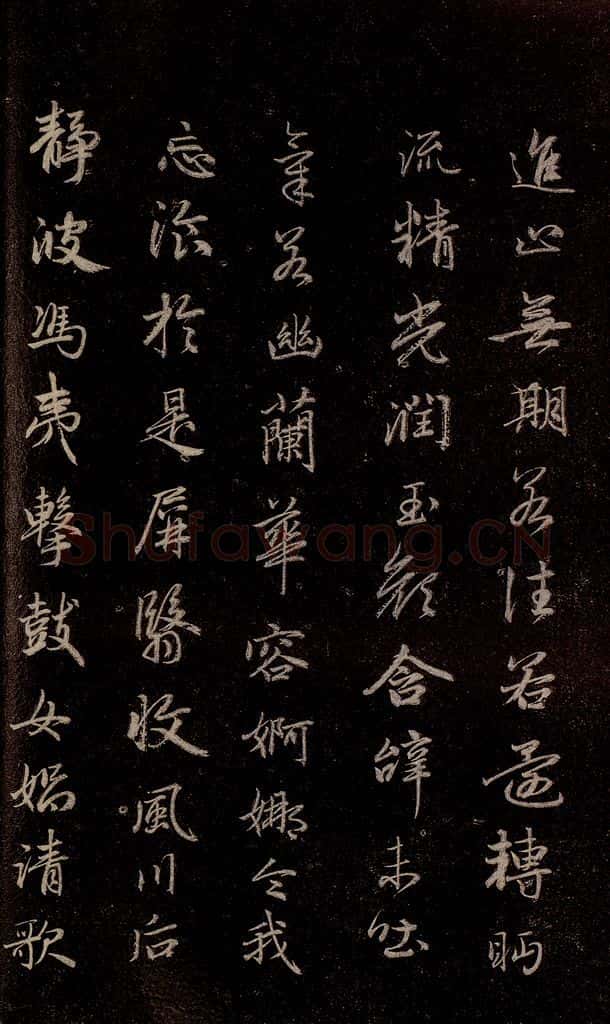 進止無期若往若還轉眄
流精光潤玉顏含辭未吐
氣若幽蘭華容婀娜令我
忘湌於是屏翳收風川后
靜波馮夷擊鼓女媧清歌
Shufawang.CN